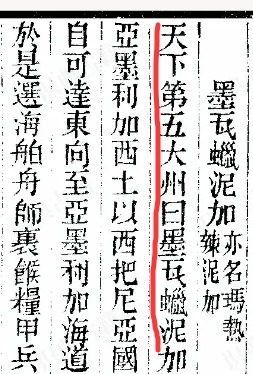 墨瓦蠟泥加亦名瑪熱
辣泥加
天下第五大州曰墨瓦蠟泥加
亞墨利加西土以西把尼亞國
自可達東向至亞墨利加海道
於是選海舶舟師裹餱糧甲兵